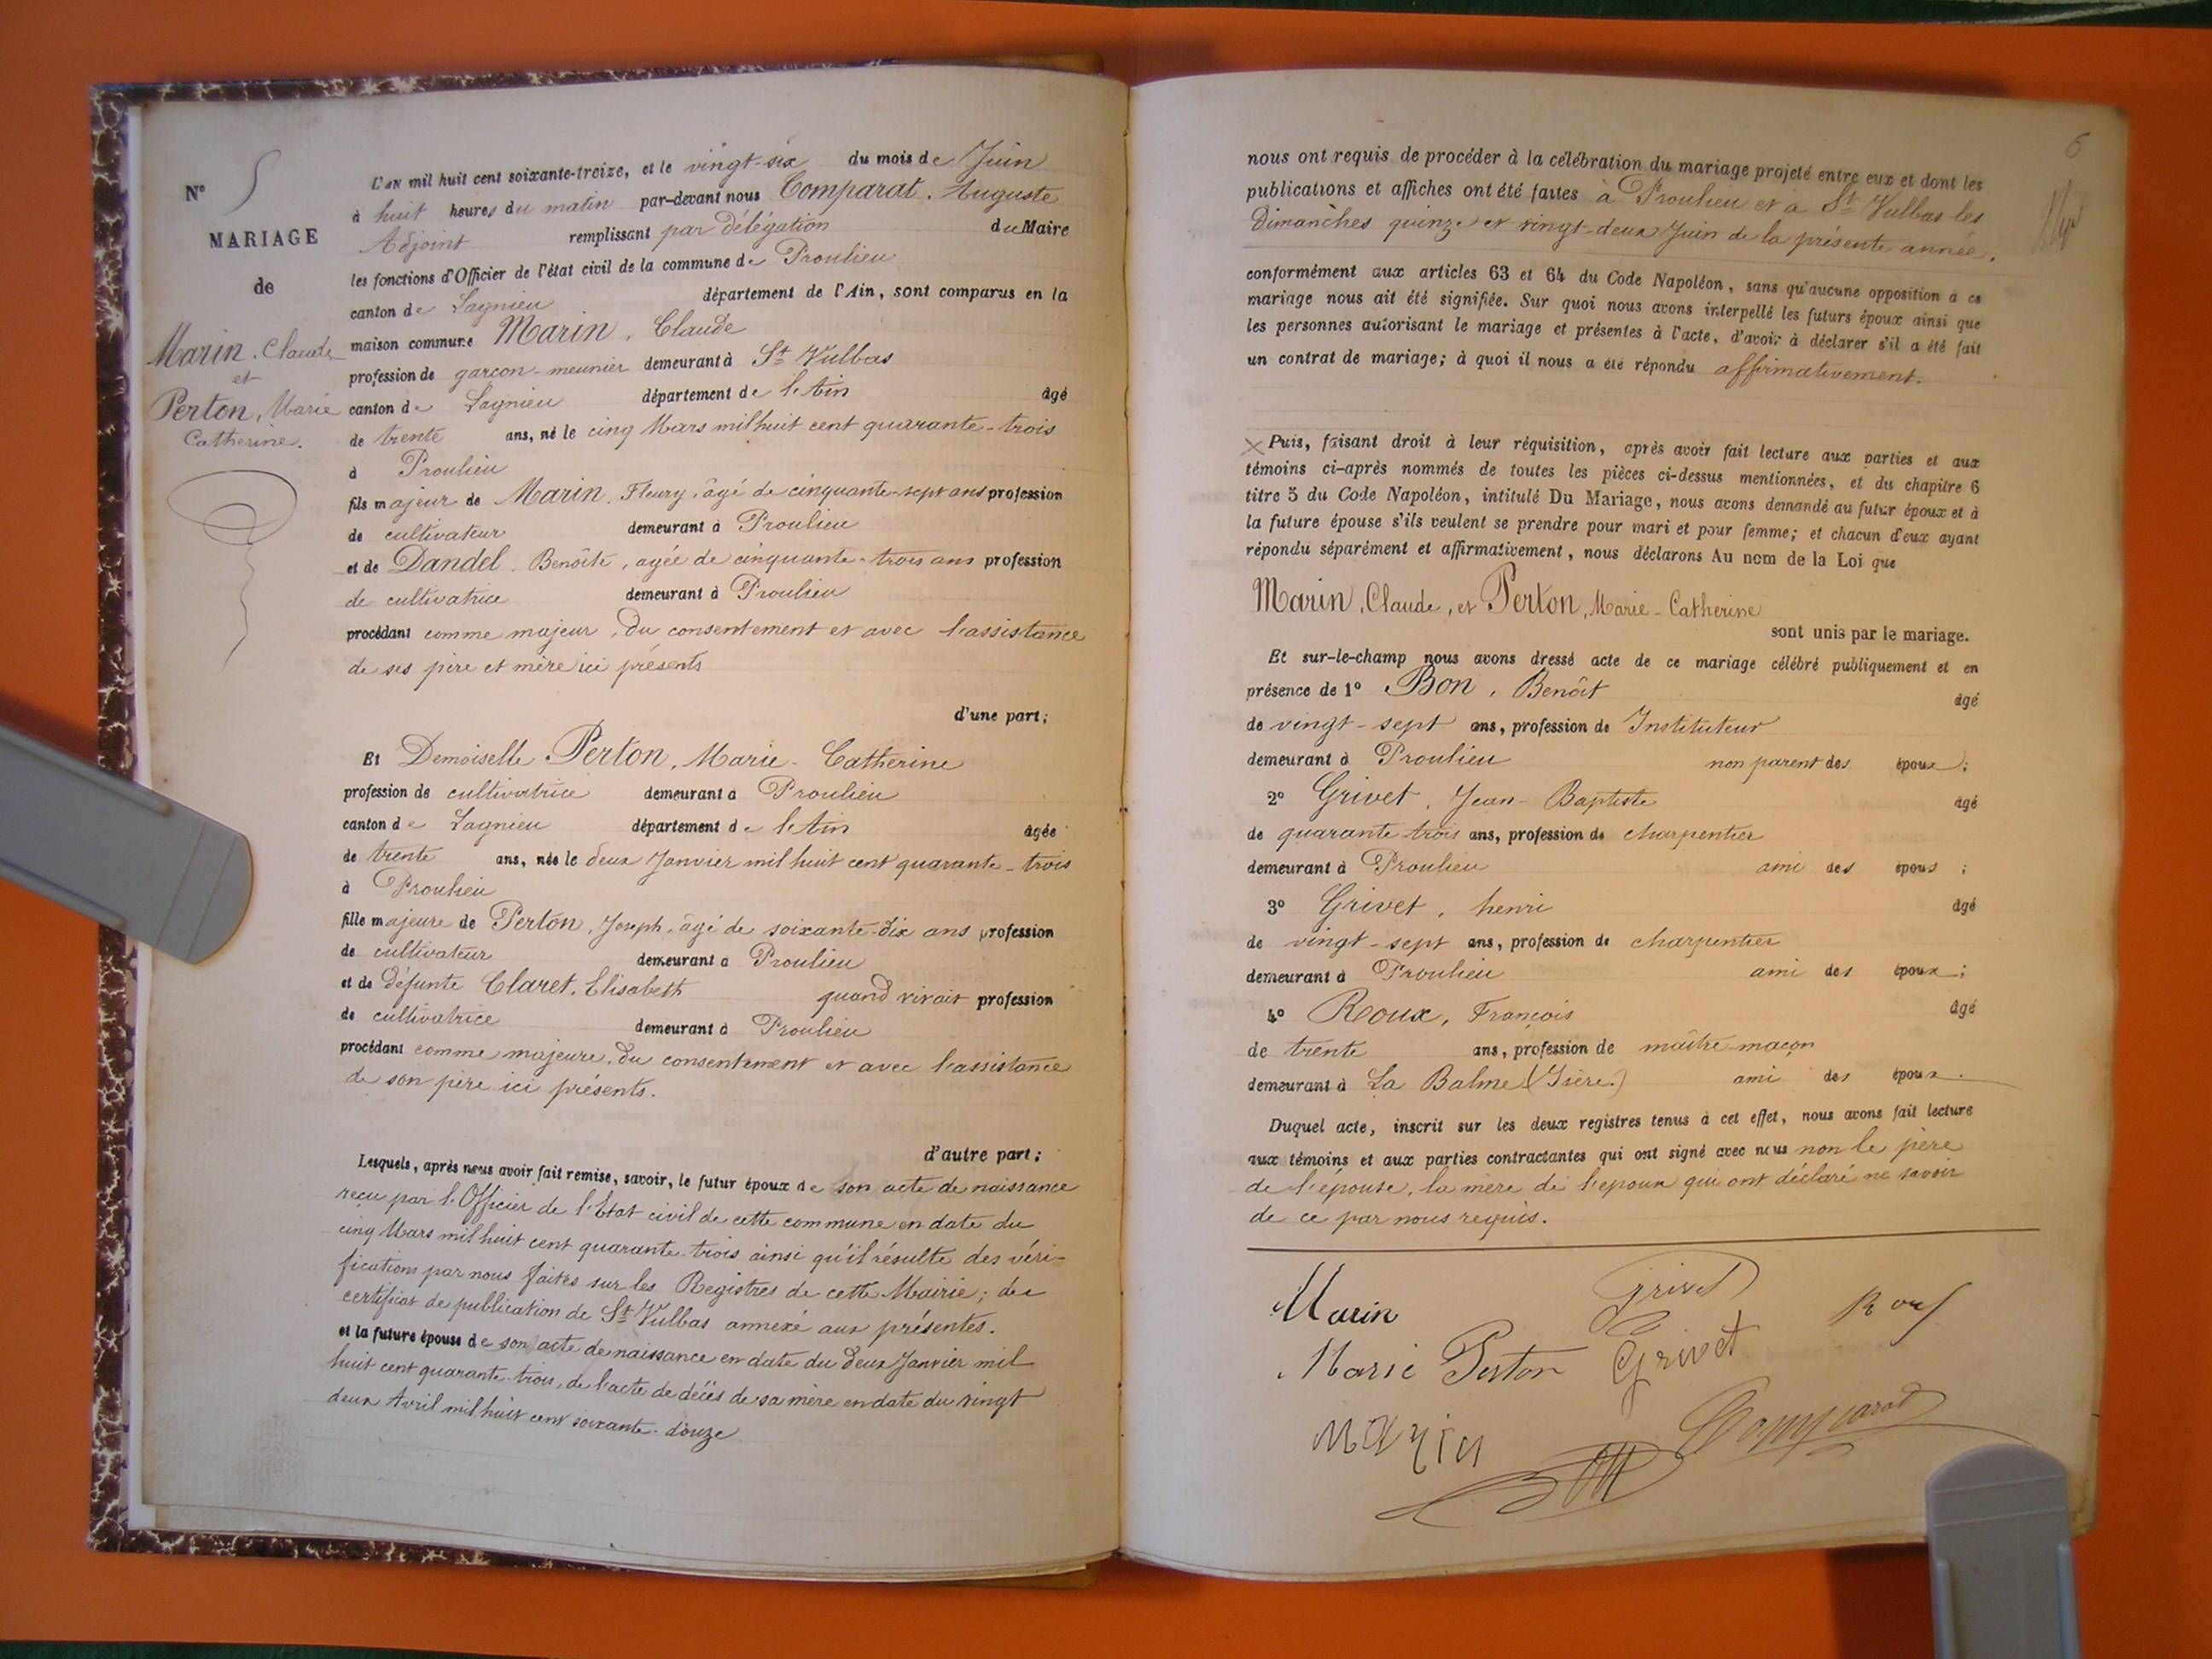 N° 5
MARIAGE
de
Marin, Claude
et
Perton, Marie
Catherine.
L'AN mil huit cent soixante-treize, et le vingt-six du mois de Juin
à huit heures du matin par-devant nous Comparat, Auguste
Adjoint remplissant par délégation du Maire
les fonctions d'Officier de l'état civil de la commune de Proulieu
canton de Lagnieu département de l'Ain, sont comparus en la
maison commune Marin, Claude
profession de garçon-meunier demeurant à St Vulbas
canton de Lagnieu département de l'Ain âgé
de trente ans, né le cinq Mars mil huit cent quarante-trois
à Proulieu
fils majeur de Marin, Fleury, âgé de cinquante-sept ans profession
de cultivateur demeurant à Proulieu
et de Dandel, Benoîte, agée de cinquante-trois ans profession
de cultivatrice demeurant à Proulieu
procédant comme majeur, du consentement et avec l'assistance
de ses père et mère ici présents
d'une part;
Et Demoiselle Perton, Marie-Catherine
profession de cultivatrice demeurant à Proulieu
canton de Lagnieu département de l'Ain âgée
de trente ans, née le deux Janvier mil huit cent quarante-trois
à Proulieu
fille majeure de Perton, Joseph, âgé de soixante-dix ans profession
de cultivateur demeurant à Proulieu
et de défunte Claret, Elisabeth quand vivait profession
de cultivatrice demeurant à Proulieu
procédant comme majeure, du consentement et avec l'assistance
de son père ici présents.
d'autre part;
Lesquels, après nous avoir fait remise, savoir, le futur époux de son acte de naissance
reçu par l'Officier de l'Etat civil de cette commune en date du
cinq Mars mil huit cent quarante-trois ainsi qu'il résulte des véri-
fications par nous faites sur les Registres de cette Mairie; de
certificat de publication de St Vulbas annexé aux présentes.
et la future épouse de son acte de naissance en date du deux Janvier mil
huit cent quarante-trois, de l'acte de décès de sa mère en date du vingt
deux Avril mil huit cent soixante-douze
6
nous ont requis de procéder à la célébration du mariage projeté entre eux et dont les
publications et affiches ont été faites à Proulieu et à St Vulbas les
Dimanches quinze et vingt-deux Juin de la présente année,
conformément aux articles 63 et 64 du Code Napoléon, sans qu'aucune opposition à ce
mariage nous ait été signifiée. Sur quoi nous avons interpellé les futurs époux ainsi que
les personnes autorisant le mariage et présentes à l'acte, d'avoir à déclarer s'il a été fait
un contrat de mariage; à quoi il nous a été répondu affirmativement.
Puis, faisant droit à leur réquisition, après avoir fait lecture aux parties et aux
témoins ci-après nommés de toutes les pièces ci-dessus mentionnées, et du chapitre 6
titre 5 du Code Napoléon, intitulé Du Mariage, nous avons demandé au futur époux et à
la future épouse s'ils veulent se prendre pour mari et pour femme; et chacun d'eux ayant
répondu séparément et affirmativement, nous déclarons Au nom de la Loi que
Marin, Claude, et Perton, Marie-Catherine
sont unis par le mariage.
Et sur-le-champ nous avons dressé acte de ce mariage célébré publiquement et en
présence de 1° Bon, Benoît âgé
de vingt-sept ans, profession de Instituteur
demeurant à Proulieu non parent des époux;
2° Grivet, Jean-Baptiste âgé
de quarante trois ans, profession de charpentier
demeurant à Proulieu ami des époux;
3° Grivet, henri âgé
de vingt-sept ans, profession de charpentier
demeurant à Proulieu ami des époux;
4° Roux, François âgé
de trente ans, profession de maître-maçon
demeurant à La Balme (Isère.) ami des époux.
Duquel acte, inscrit sur les deux registres tenus à cet effet, nous avons fait lecture
aux témoins et aux parties contractantes qui ont signé avec nous non le père
de l'épouse, la mère de l'époux qui ont déclaré ne savoir
de ce par nous requis.
Marin Grivet Roux
Marie Perton Grivet
Marin Comparat